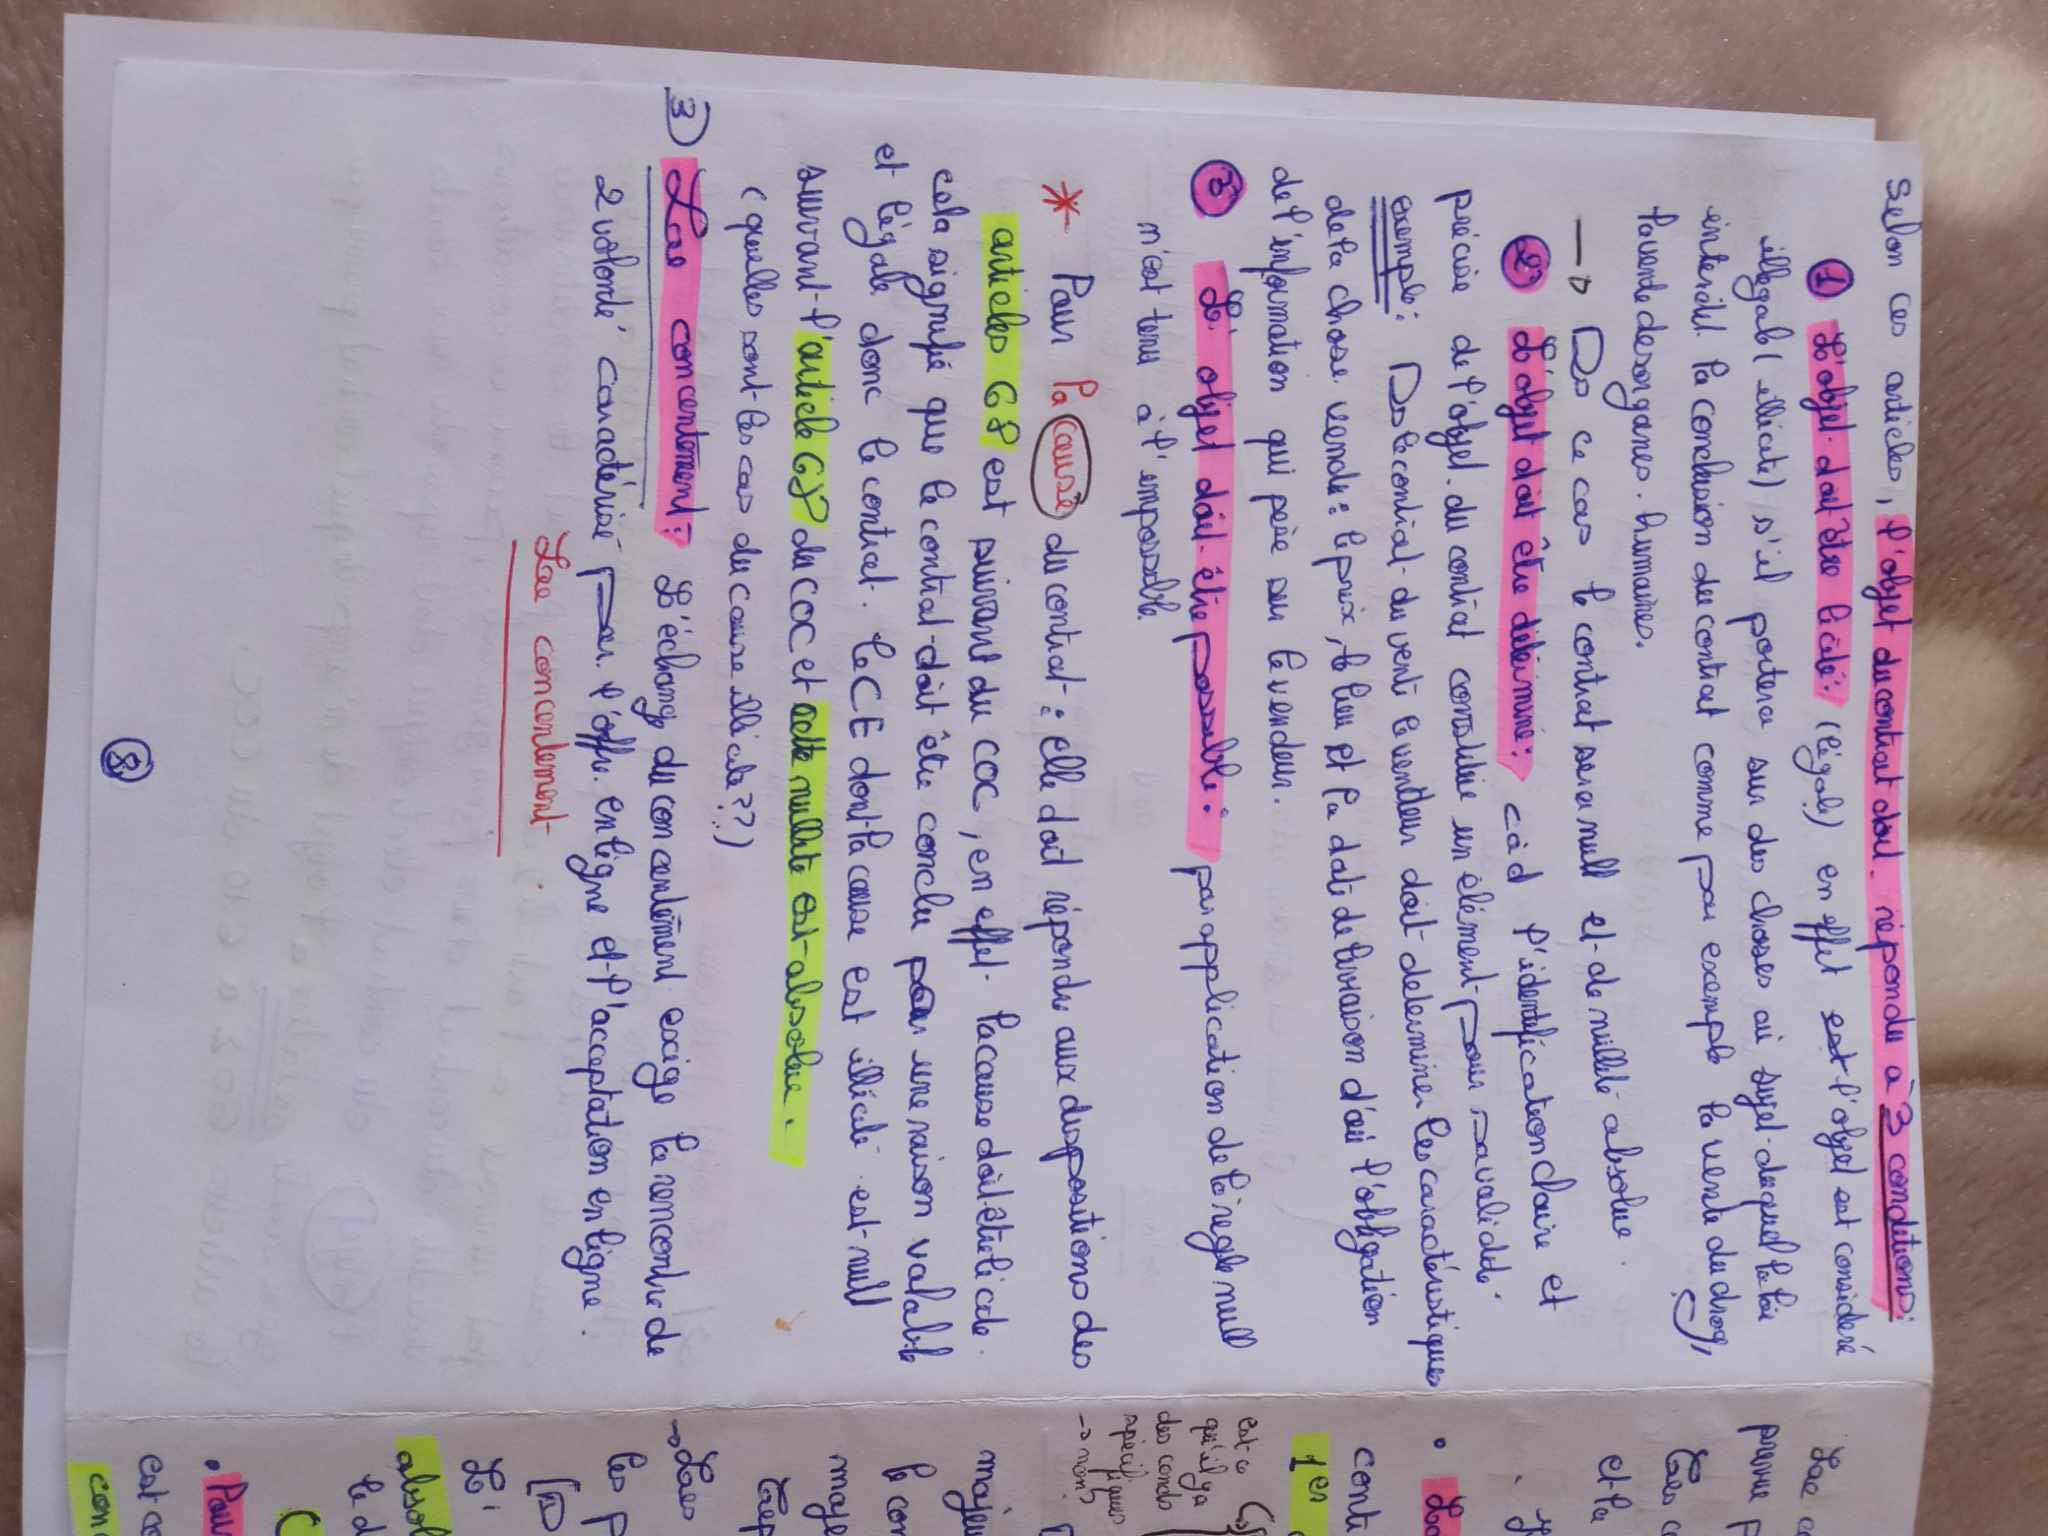 Selon ces articles, l'objet du contrat doit répondre à 3 conditions:
① L'objet doit être licite: (légale) en effet est l'objet est consideré
illegale (illicite) s'il portera sur des choses où sujet duquel la loi
interdit la conclusion du contrat comme par exemple la vente du drog,
la vente des organes humaines.
→ Ds ce cas le contrat sera null et de nullité absolue.
② L'objet doit être déterminé: càd l'identification claire et
précise de l'objet du contrat constitue un élément pour sa validité.
exemple: Ds le contrat du vente le vendeur doit determiner les caractéristiques
de la chose vendu: le prix, le lieu et la date de livraison d'où l'obligation
de l'information qui pèse sur le vendeur.
③ L'objet doit être possible: par application de la règle null
n'est tenu à l'impossible.
* Pour la cause du contrat: elle doit répondre aux dispositions des
articles 68 est suivant du COC, en effet la cause doit être licite
cela signifie que le contrat doit être conclu pour une raison valable
et légale donc le contrat. le CE dont la cause est illicite est null
suivant l'article 68 du COC et cette nullité est absolue.
(quelles sont les cas du cause illicite??)
3) Lae concentement: L'échange du concentement exige la rencontre de
2 volonté caractérisé par l'offre en ligne et l'acceptation en ligne.
Lae concentement
8
Lae
prevue
et la
1er
est-ce
qu'il ya
des conds
spécifiques
→ non?
majeu
→ Les
les p
L'
absol
le d
• Pour
est co